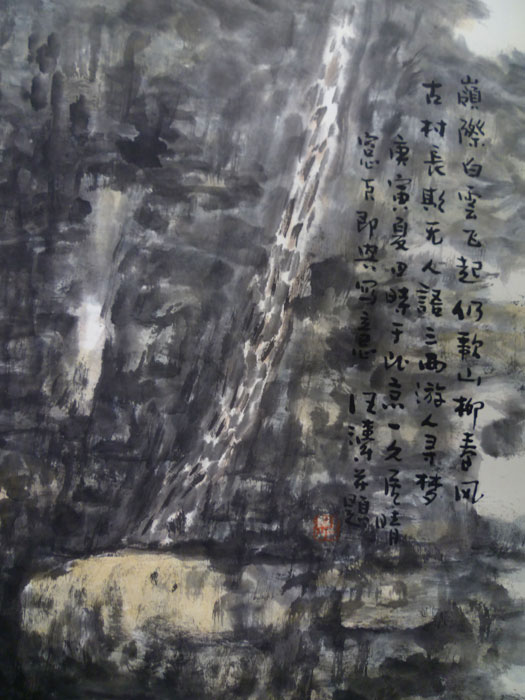 嶺際白雲飞起仍歌山柳春风
古村長斯无人語三两游人寻梦
庚寅夏田時于北京一久居晴
窓下即興写意 汪 并題